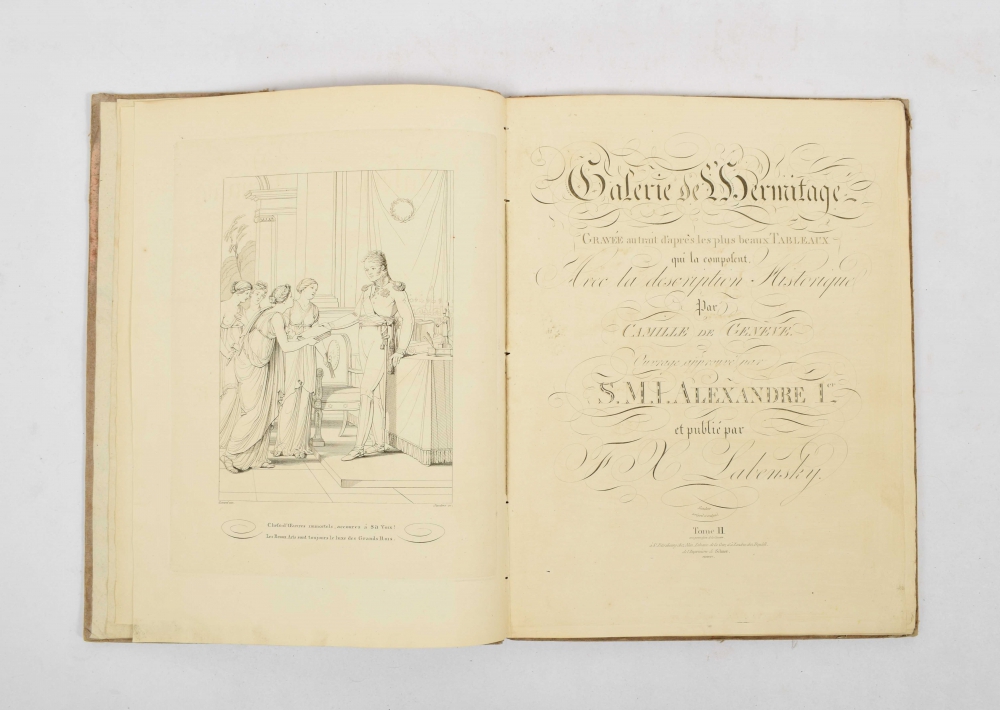 Chefs-d'Œuvres immortels, accourez à SA Voix!
Les Beaux Arts sont toujours le luxe des Grands Rois.
Galerie de l'Hermitage
GRAVÉE au trait d'après les plus beaux TABLEAUX
qui la composent.
Avec la description Historique
Par
CAMILLE DE GENÈVE.
Ouvrage approuvé par
S.M.I. ALEXANDRE 1.er
et publié par
F X Labensky.
Tome II